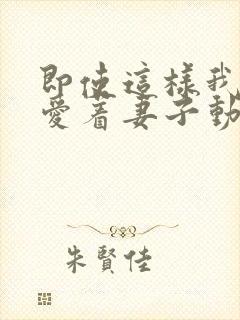 即使這樣我
愛着妻子動
朱賢佳